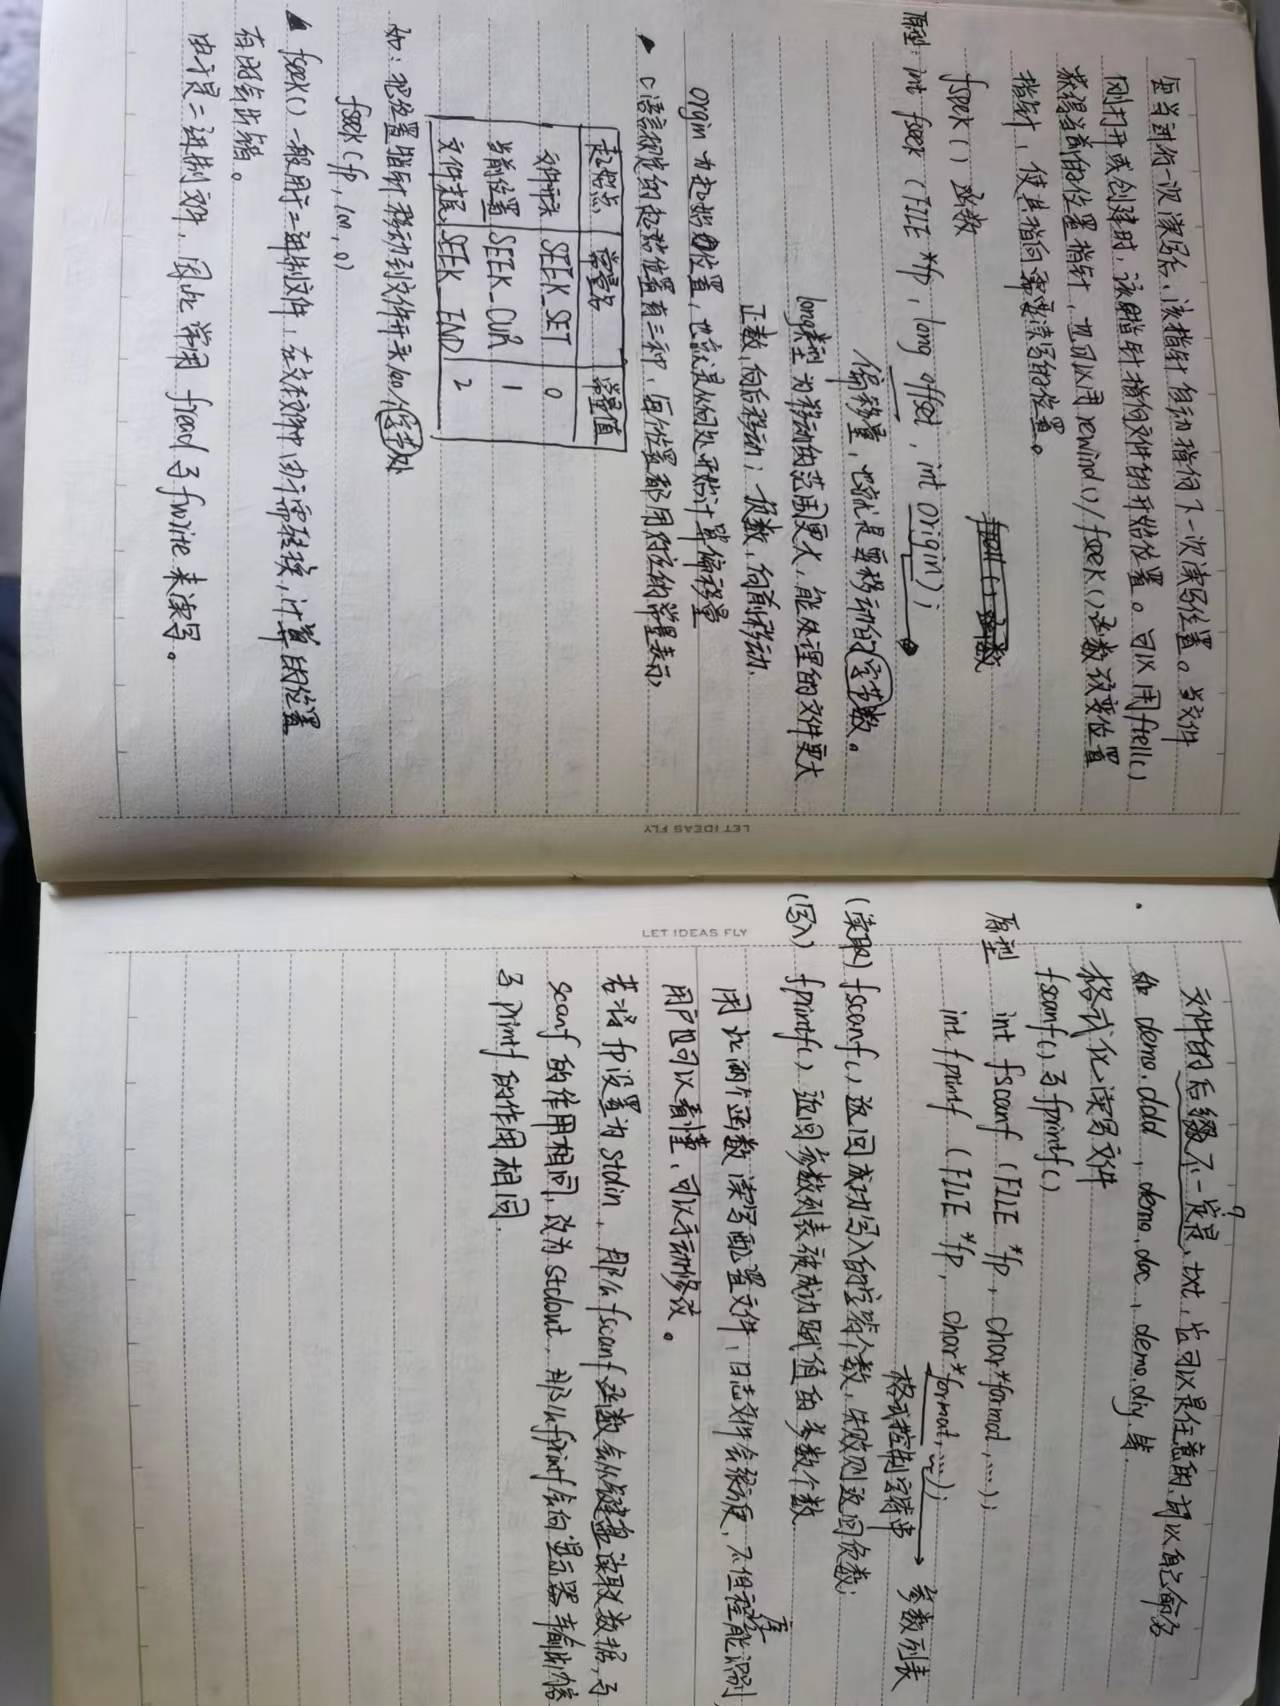 每当进行一次读写后，该指针自动指向下一次读写位置。当文件
刚打开或创建时，该指针指向文件的开始位置。可以用ftell()
获得当前的位置指针，也可以用rewind()/fseek()函数改变位置
指针，使其指向需要读写的位置。
fseek()函数
原型：int fseek (FILE *fp, long offset, int origin);
偏移量，也就是要移动的字节数。
long类型为移动的范围更大，能处理的文件更大
正数，向后移动；负数，向前移动.
origin为起始位置，也就是从何处开始计算偏移量
▲ C语言规定的起始位置有三种，每个位置都用对应的常量表示，
起始点 常量名 常量值
文件开头 SEEK_SET 0
当前位置 SEEK_CUR 1
文件末尾 SEEK_END 2
如：把位置指针移动到文件开头100个字节处
fseek(fp, 100, 0)
▲ fseek()一般用于二进制文件，在文本文件中由于需转换，计算的位置
有时会出错。
由于是二进制文件，因此常用fread与fwrite来读写。
LET IDEAS FLY
LET IDEAS FLY
9
文件的后缀不一定是.txt，也可以是任意的，可以自己命名
如 demo.ddd, demo.doc, demo.diy 等.
格式化读写文件
fscanf()与fprintf()
原型 int fscanf (FILE *fp, char*format, ...);
int fprintf (FILE *fp, char*format, ...);
格式控制字符串 → 参数列表
(读取) fscanf()，返回成功写入的字符个数，失败则返回负数；
(写入) fprintf()，返回参数列表被成功赋值的参数个数
用此两个函数读写配置文件，日志文件会很方便，不但程序能识别
用户也可以看懂，可以手动修改。
若将fp设置为stdin，那么fscanf函数会从键盘读取数据，与
scanf的作用相同，改为stdout，那么fprintf会向显示器输出内容
与printf的作用相同.